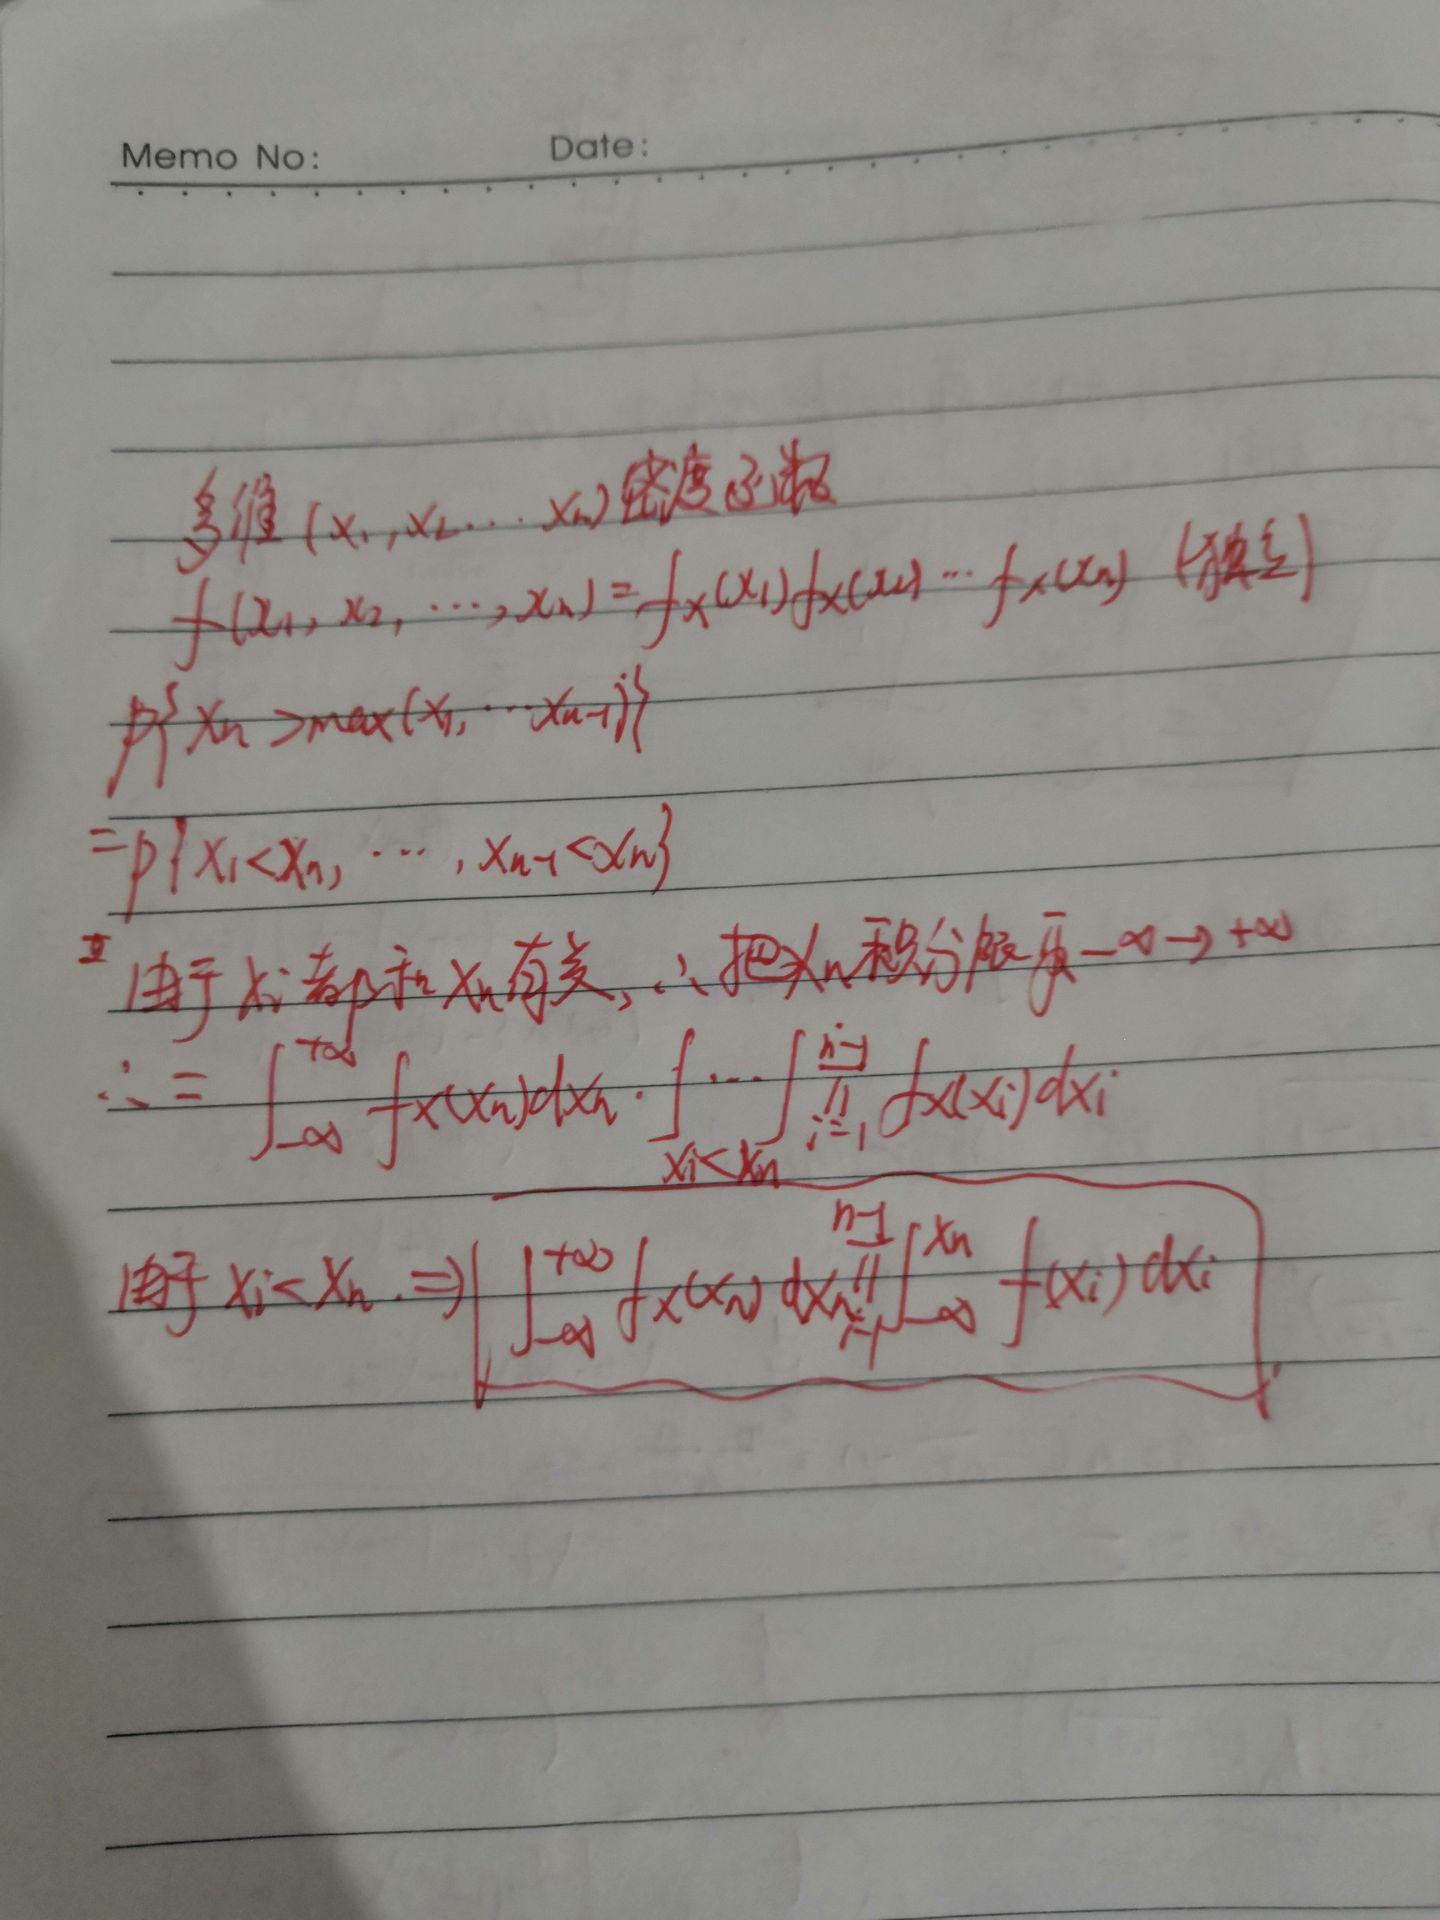 Memo No: Date:
多维(x₁,x₂...xₙ)密度函数
f(x₁,x₂,...,xₙ)=fx(x₁)fx(x₂)...fx(xₙ) (独立)
P{xₙ>max(x₁,...xₙ₋₁)}
=P{x₁<xₙ,...,xₙ₋₁<xₙ}
由于xᵢ都和xₙ有关,∴把xₙ积分限-∞→+∞
∴= ∫_{-∞}^{+∞} fx(xₙ)dxₙ·∫...∫_{xᵢ<xₙ} ∏_{i=1}^{n-1} fx(xᵢ)dxᵢ
由于xᵢ<xₙ.⇒ ∫_{-∞}^{+∞} fx(xₙ)dxₙ ∏_{i=1}^{n-1} ∫_{-∞}^{xₙ} f(xᵢ)dxᵢ